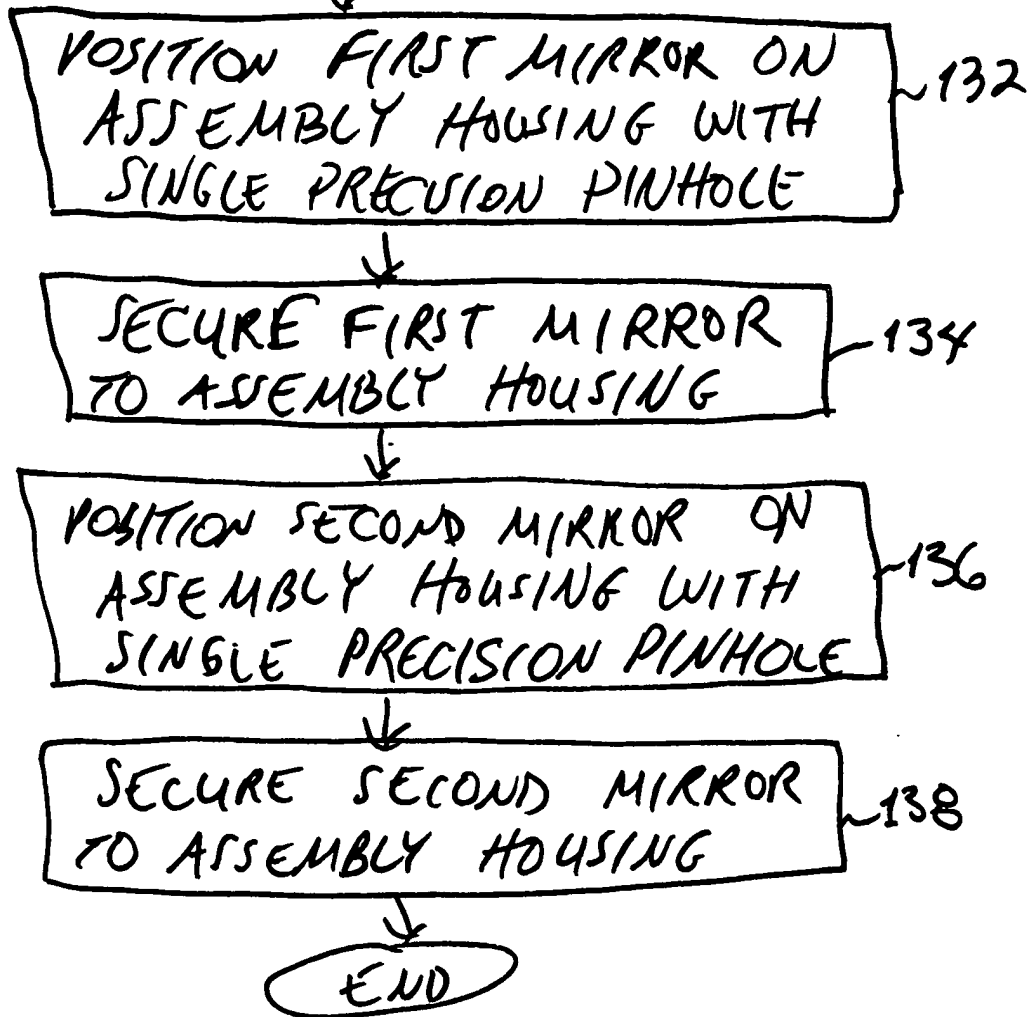 POSITION FIRST MIRROR ON
ASSEMBLY HOUSING WITH
SINGLE PRECISION PINHOLE
132
SECURE FIRST MIRROR
TO ASSEMBLY HOUSING
134
POSITION SECOND MIRROR ON
ASSEMBLY HOUSING WITH
SINGLE PRECISION PINHOLE
136
SECURE SECOND MIRROR
TO ASSEMBLY HOUSING
138
END